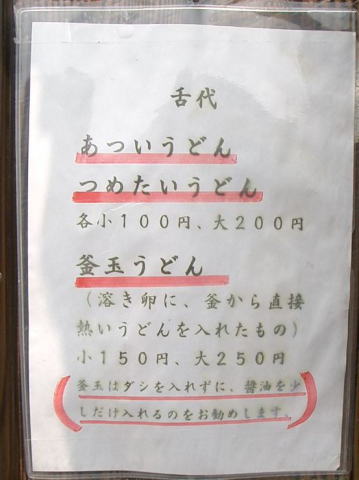 舌代
あついうどん
つめたいうどん
各小100円、大200円
釜玉うどん
(溶き卵に、釜から直接
熱いうどんを入れたもの)
小150円、大250円
釜玉はダシを入れずに、醤油を少
しだけ入れるのをお勧めします。